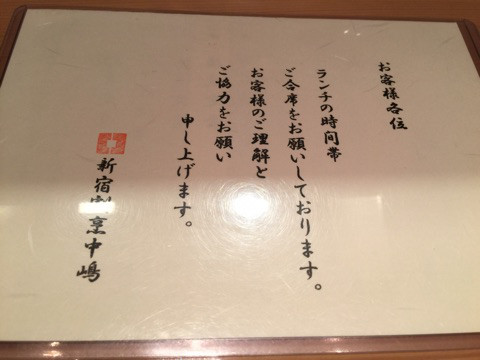 お客様各位
ランチの時間帯
ご合席をお願いしております。
お客様のご理解と
ご協力をお願い
申し上げます。
新宿割烹中嶋